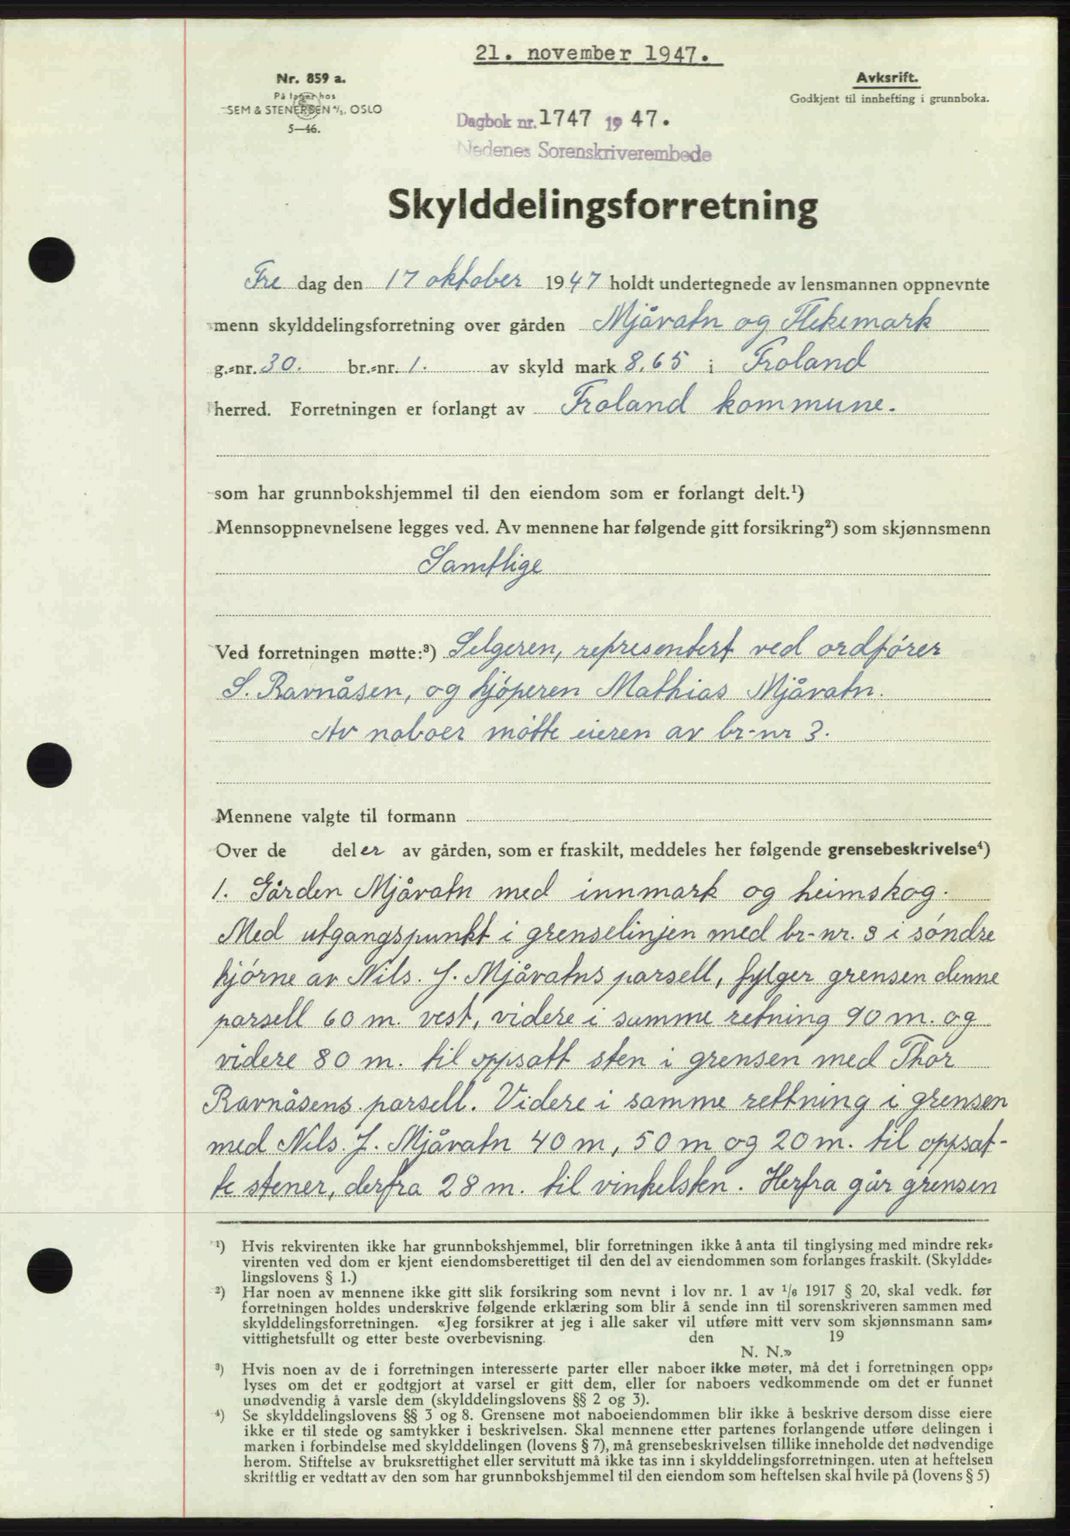 21. november 1947.
Nr. 859 a.
På lager hos
SEM & STENERSEN A/S, OSLO
5—46.
Avksrift.
Godkjent til innhefting i grunnboka.
Dagbok nr. 1747 1947.
Nedenes Sorenskriverembede
Skylddelingsforretning
Fre dag den 17 oktober 1947 holdt undertegnede av lensmannen oppnevnte
menn skylddelingsforretning over gården Mjåvatn og Flekemark
g.-nr. 30. br.-nr. 1. av skyld mark 8,65 i Froland
herred. Forretningen er forlangt av Froland kommune.
som har grunnbokshjemmel til den eiendom som er forlangt delt.¹)
Mennsoppnevnelsene legges ved. Av mennene har følgende gitt forsikring²) som skjønnsmenn
Samtlige
Ved forretningen møtte:³) Selgeren, representert ved ordfører
S. Ravnåsen, og kjøperen Mathias Mjåvatn.
Av naboer møtte eieren av br-nr 3.
Mennene valgte til formann
Over de deler av gården, som er fraskilt, meddeles her følgende grensebeskrivelse⁴)
1. Gården Mjåvatn med innmark og heimskog.
Med utgangspunkt i grenselinjen med br-nr. 3 i søndre
hjørne av Nils. J. Mjåvatns parsell, fylger grensen denne
parsell 60 m. vest, videre i samme retning 90 m. og
videre 80 m. til oppsatt sten i grensen med Thor
Ravnåsens parsell. Videre i samme rettning i grensen
med Nils. J. Mjåvatn 40 m, 50 m og 20 m. til oppsat-
te stener, derfra 28 m. til vinkelsten. Herfra går grensen
¹) Hvis rekvirenten ikke har grunnbokshjemmel, blir forretningen ikke å anta til tinglysing med mindre rek-
virenten ved dom er kjent eiendomsberettiget til den del av eiendommen som forlanges fraskilt. (Skyldde-
lingslovens § 1.)
²) Har noen av mennene ikke gitt slik forsikring som nevnt i lov nr. 1 av 1/6 1917 § 20, skal vedk. før
forretningen holdes underskrive følgende erklæring som blir å sende inn til sorenskriveren sammen med
skylddelingsforretningen. «Jeg forsikrer at jeg i alle saker vil utføre mitt verv som skjønnsmann sam-
vittighetsfullt og etter beste overbevisning. den 19
N. N.»
³) Hvis noen av de i forretningen interesserte parter eller naboer ikke møter, må det i forretningen opp-
lyses om det er godtgjort at varsel er gitt dem, eller for naboers vedkommende om det er funnet
unødvendig å varsle dem (skylddelingslovens §§ 2 og 3).
⁴) Se skylddelingslovens §§ 3 og 8. Grensene mot naboeiendommen blir ikke å beskrive dersom disse eiere
ikke er til stede og samtykker i beskrivelsen. Skal mennene etter partenes forlangende utføre delingen i
marken i forbindelse med skylddelingen (lovens § 7), må grensebeskrivelsen tillike inneholde det nødvendige
herom. Stiftelse av bruksrettighet eller servitutt må ikke tas inn i skylddelingsforretningen. uten at heftelsen
skriftlig er vedtatt av den som har grunnbokshjemmel til den eiendom som heftelsen skal hvile på (lovens § 5)